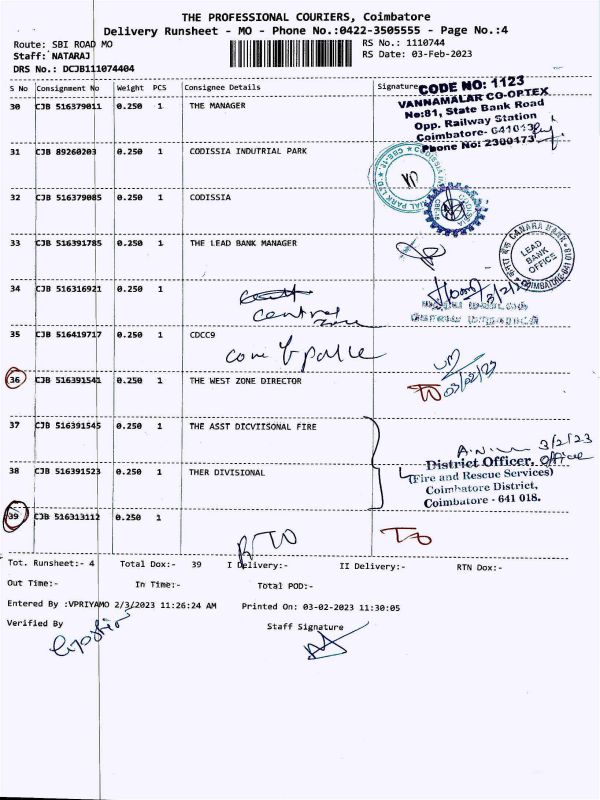 THE PROFESSIONAL COURIERS, Coimbatore
Delivery Runsheet - MO - Phone No.:0422-3505555 - Page No.:4
Route: SBI ROAD MO
RS No.: 1110744
Staff: NATARAJ
RS Date: 03-Feb-2023
DRS No.: DCJB111074404
S No Consignment No Weight PCS Consignee Details Signature
CODE NO: 1123
VANNAMALAR CO-OPTEX
No:81, State Bank Road
Opp. Railway Station
Coimbatore- 641018
Phone No: 2300173
30 CJB 516379011 0.250 1 THE MANAGER
31 CJB 89260203 0.250 1 CODISSIA INDUTRIAL PARK
32 CJB 516379085 0.250 1 CODISSIA
33 CJB 516391785 0.250 1 THE LEAD BANK MANAGER
CANARA BANK
LEAD
BANK
OFFICE
34 CJB 516316921 0.250 1
central
zone
35 CJB 516419717 0.250 1 CDCC9
36 CJB 516391541 0.250 1 THE WEST ZONE DIRECTOR
TO 03/02/23
37 CJB 516391545 0.250 1 THE ASST DICVIISONAL FIRE
3/2/23
District Officer, office
(Fire and Rescue Services)
Coimbatore District,
Coimbatore - 641 018.
38 CJB 516391523 0.250 1 THER DIVISIONAL
39 CJB 516313112 0.250 1
RTO TO
Tot. Runsheet:- 4 Total Dox:- 39 I Delivery:- II Delivery:- RTN Dox:-
Out Time:- In Time:- Total POD:-
Entered By :VPRIYAMO 2/3/2023 11:26:24 AM Printed On: 03-02-2023 11:30:05
Verified By Staff Signature